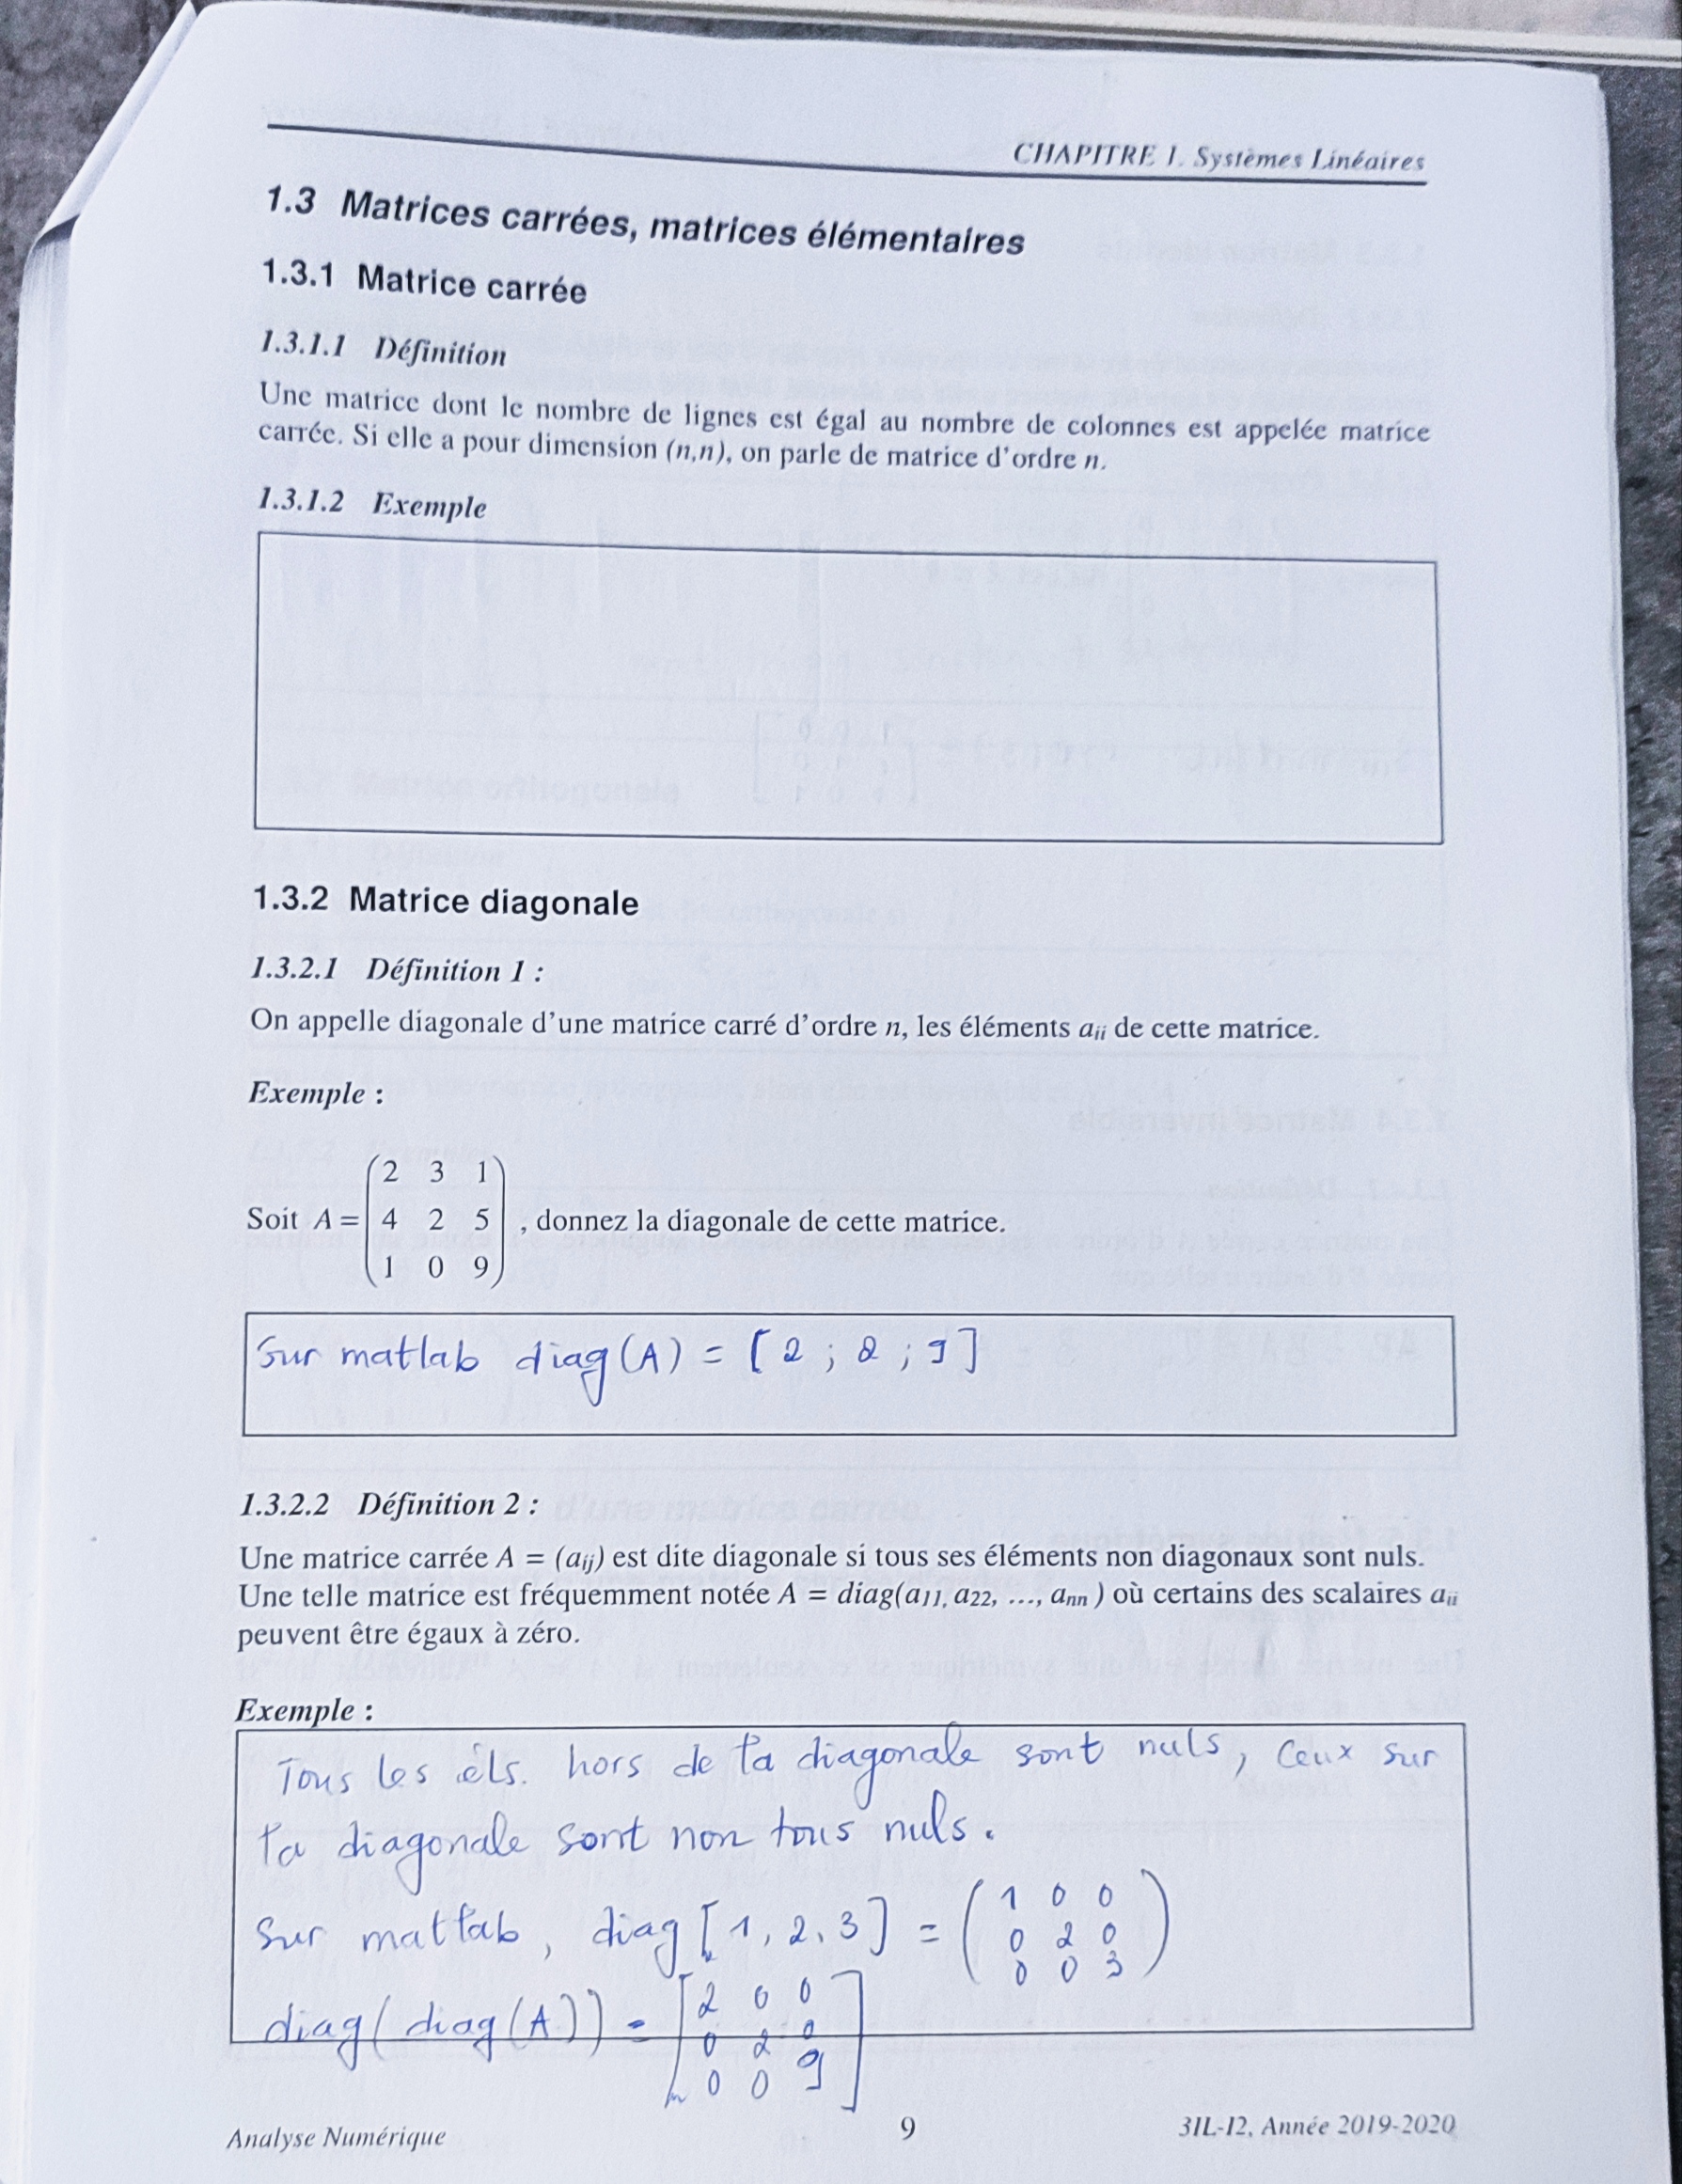 CHAPITRE 1. Systèmes Linéaires
1.3 Matrices carrées, matrices élémentaires
1.3.1 Matrice carrée
1.3.1.1 Définition
Une matrice dont le nombre de lignes est égal au nombre de colonnes est appelée matrice
carrée. Si elle a pour dimension (n,n), on parle de matrice d'ordre n.
1.3.1.2 Exemple
1.3.2 Matrice diagonale
1.3.2.1 Définition 1 :
On appelle diagonale d'une matrice carré d'ordre n, les éléments aii de cette matrice.
Exemple :
2 3 1
Soit A = 4 2 5 , donnez la diagonale de cette matrice.
1 0 9
Sur matlab diag(A) = [2 ; 2 ; 9]
1.3.2.2 Définition 2 :
Une matrice carrée A = (aij) est dite diagonale si tous ses éléments non diagonaux sont nuls.
Une telle matrice est fréquemment notée A = diag(a11, a22, ..., ann ) où certains des scalaires aii
peuvent être égaux à zéro.
Exemple :
Tous les éls. hors de la diagonale sont nuls, ceux sur
la diagonale sont non tous nuls.
1 0 0
Sur matlab, diag[1, 2, 3] = ( 0 2 0 )
0 0 3
2 0 0
diag(diag(A)) = [ 0 2 0 ]
0 0 9
Analyse Numérique 9 3IL-I2, Année 2019-2020